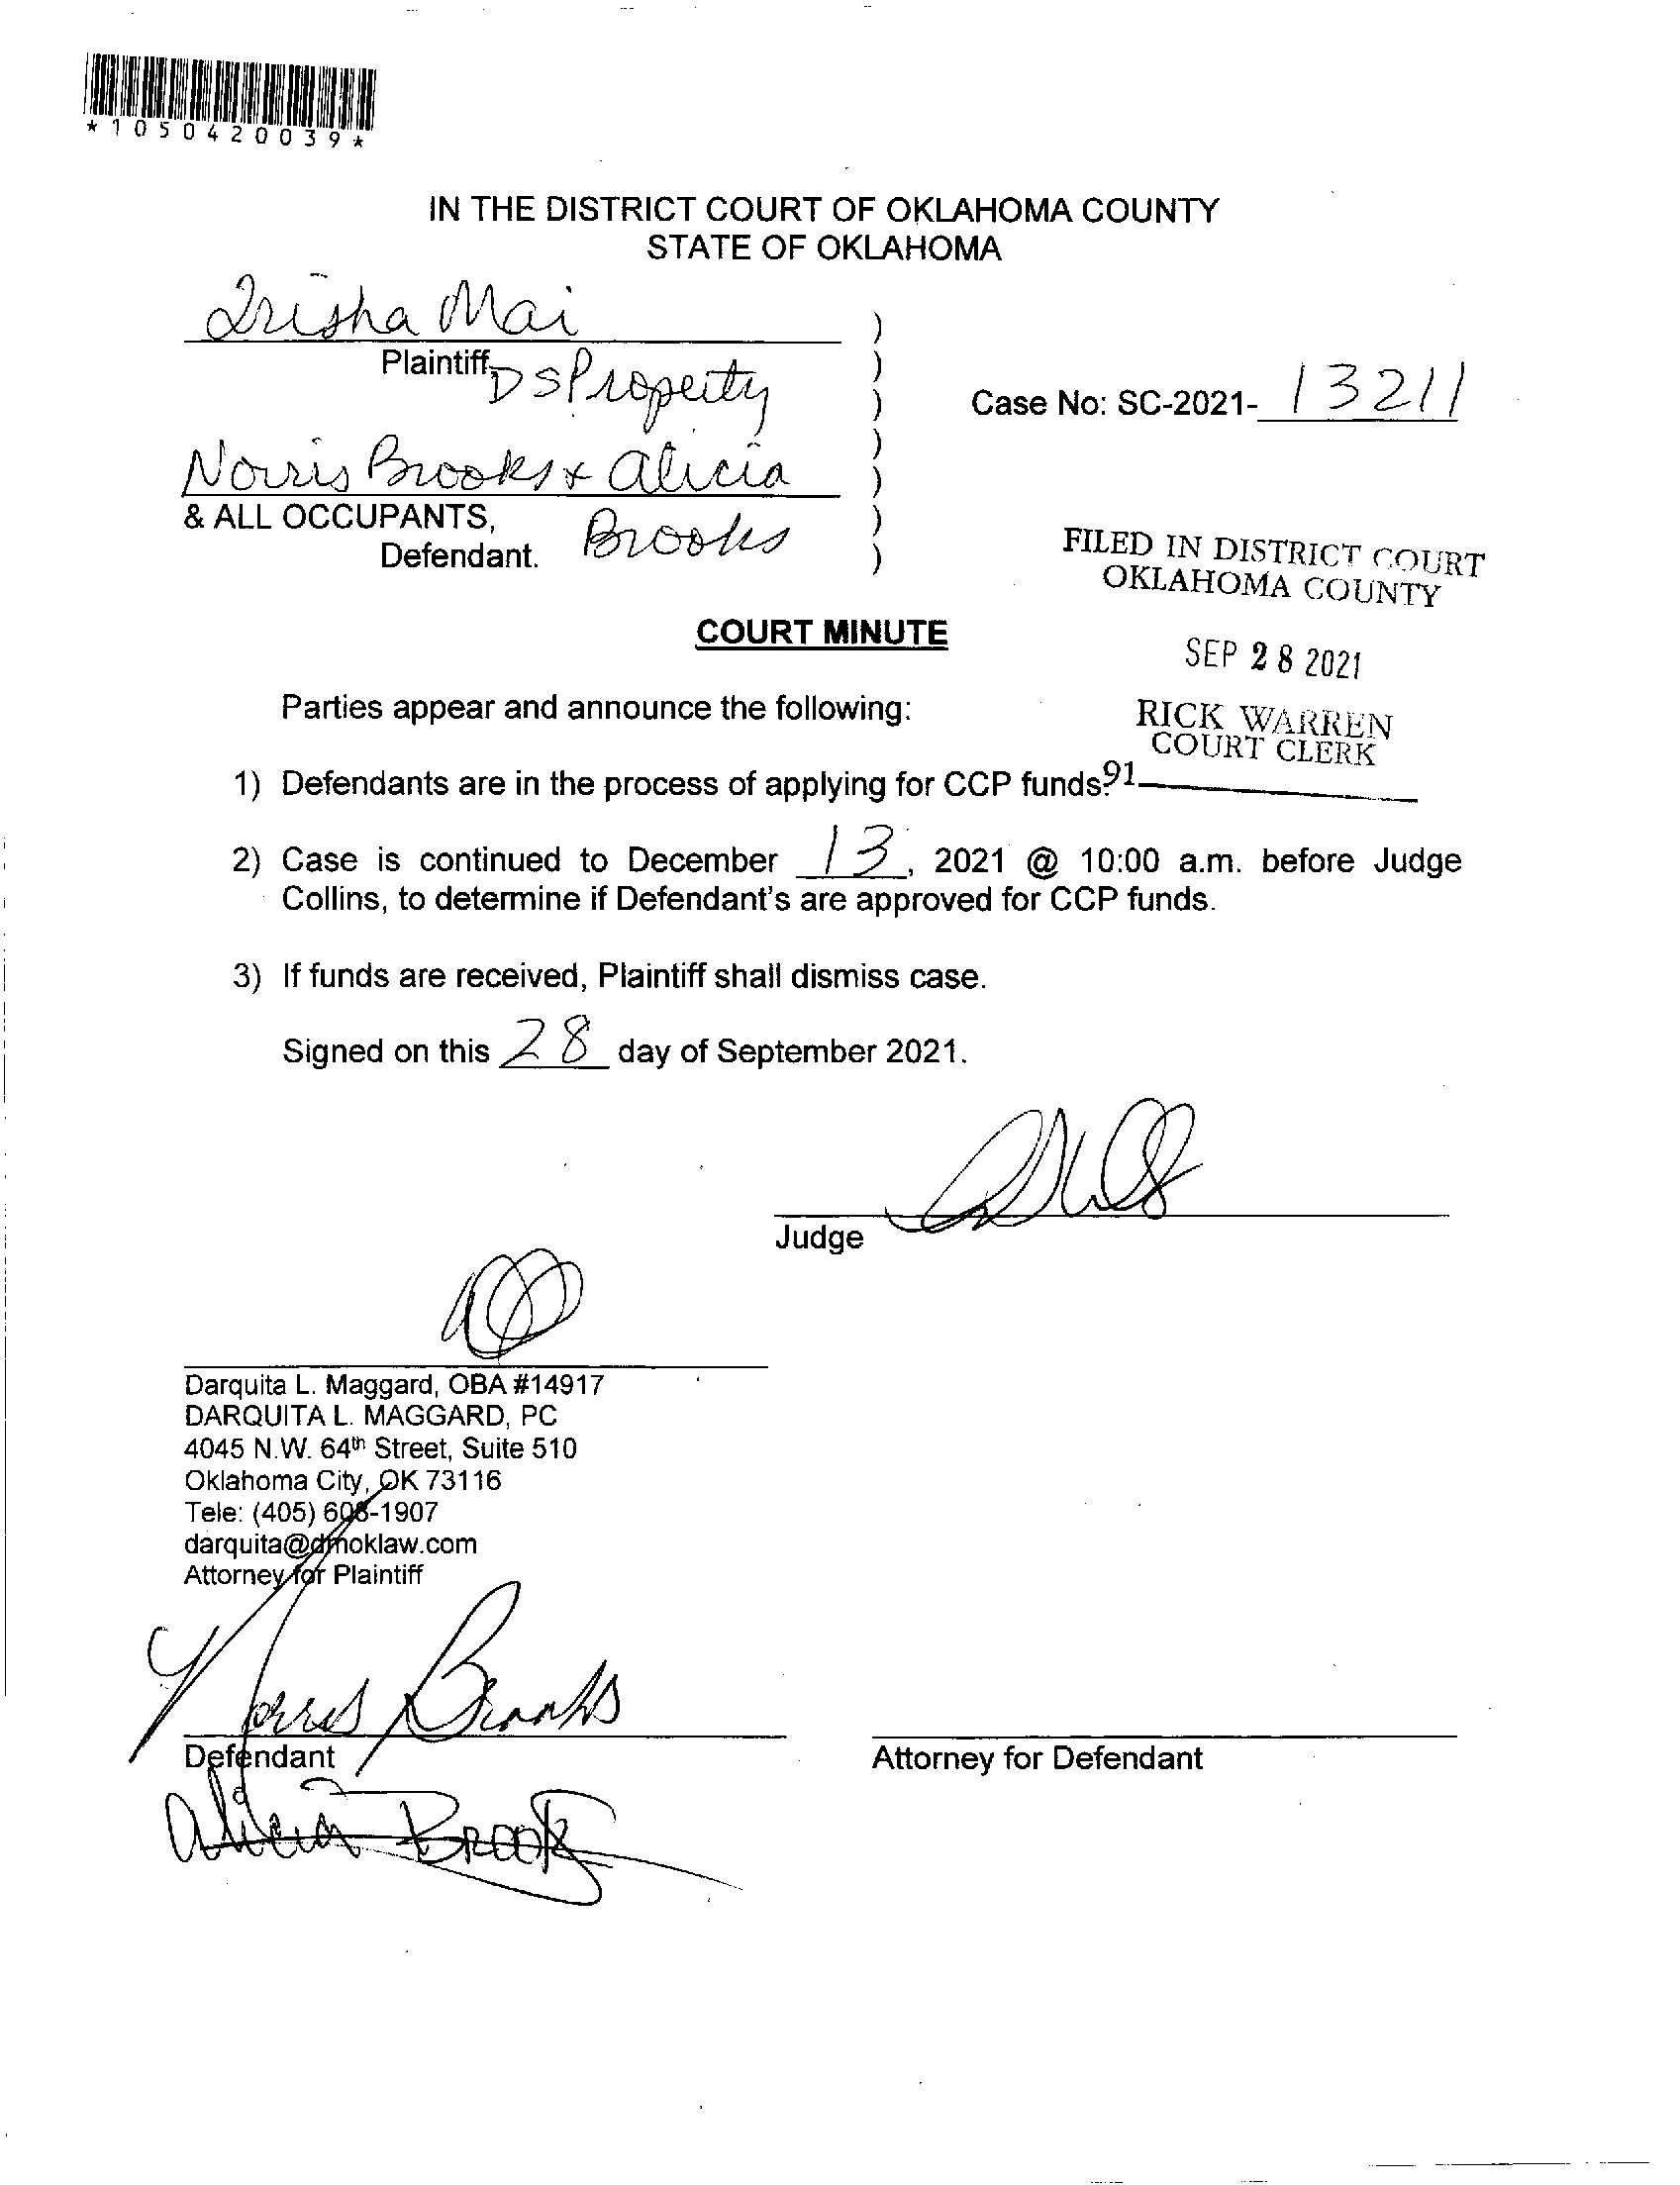 *1050420039*
IN THE DISTRICT COURT OF OKLAHOMA COUNTY
STATE OF OKLAHOMA
Trisha Mai )
Plaintiff, DS Property )
) Case No: SC-2021-13211
)
Norris Brooks & Alicia )
& ALL OCCUPANTS, Brooks )
Defendant. )
FILED IN DISTRICT COURT
OKLAHOMA COUNTY
COURT MINUTE
SEP 28 2021
Parties appear and announce the following:
RICK WARREN
COURT CLERK
91
1) Defendants are in the process of applying for CCP funds.
2) Case is continued to December 13, 2021 @ 10:00 a.m. before Judge
Collins, to determine if Defendant's are approved for CCP funds.
3) If funds are received, Plaintiff shall dismiss case.
Signed on this 28 day of September 2021.
Judge
Darquita L. Maggard, OBA #14917
DARQUITA L. MAGGARD, PC
4045 N.W. 64th Street, Suite 510
Oklahoma City, OK 73116
Tele: (405) 608-1907
darquita@dmoklaw.com
Attorney for Plaintiff
Norris Brooks
Defendant
Attorney for Defendant
Alicia Brooks